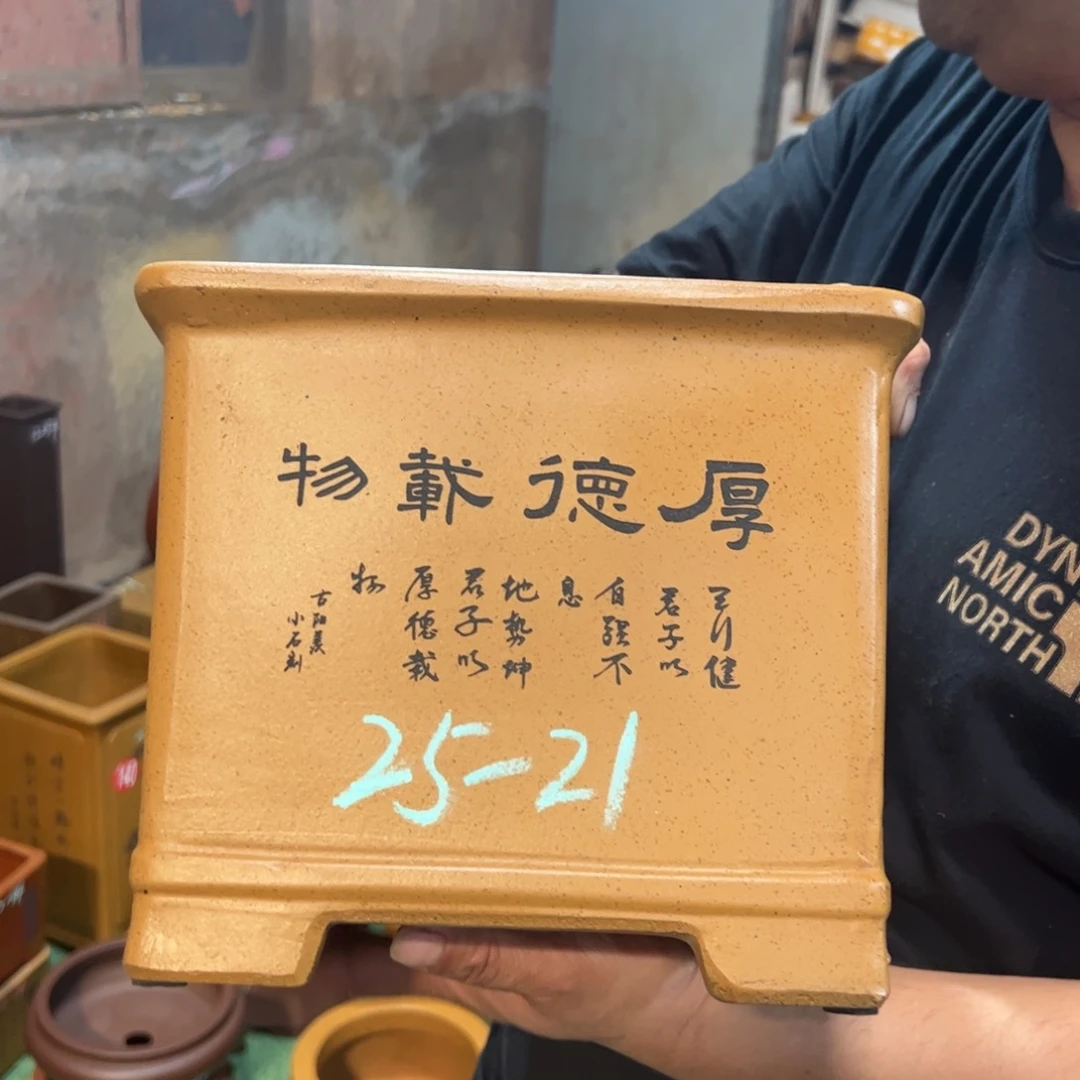 厚德載物
天行健
君子以
自强不
息
地勢坤
君子以
厚德載
物
古阳羡
小石刻
25-21
DYN
AMIC
NORTH
140